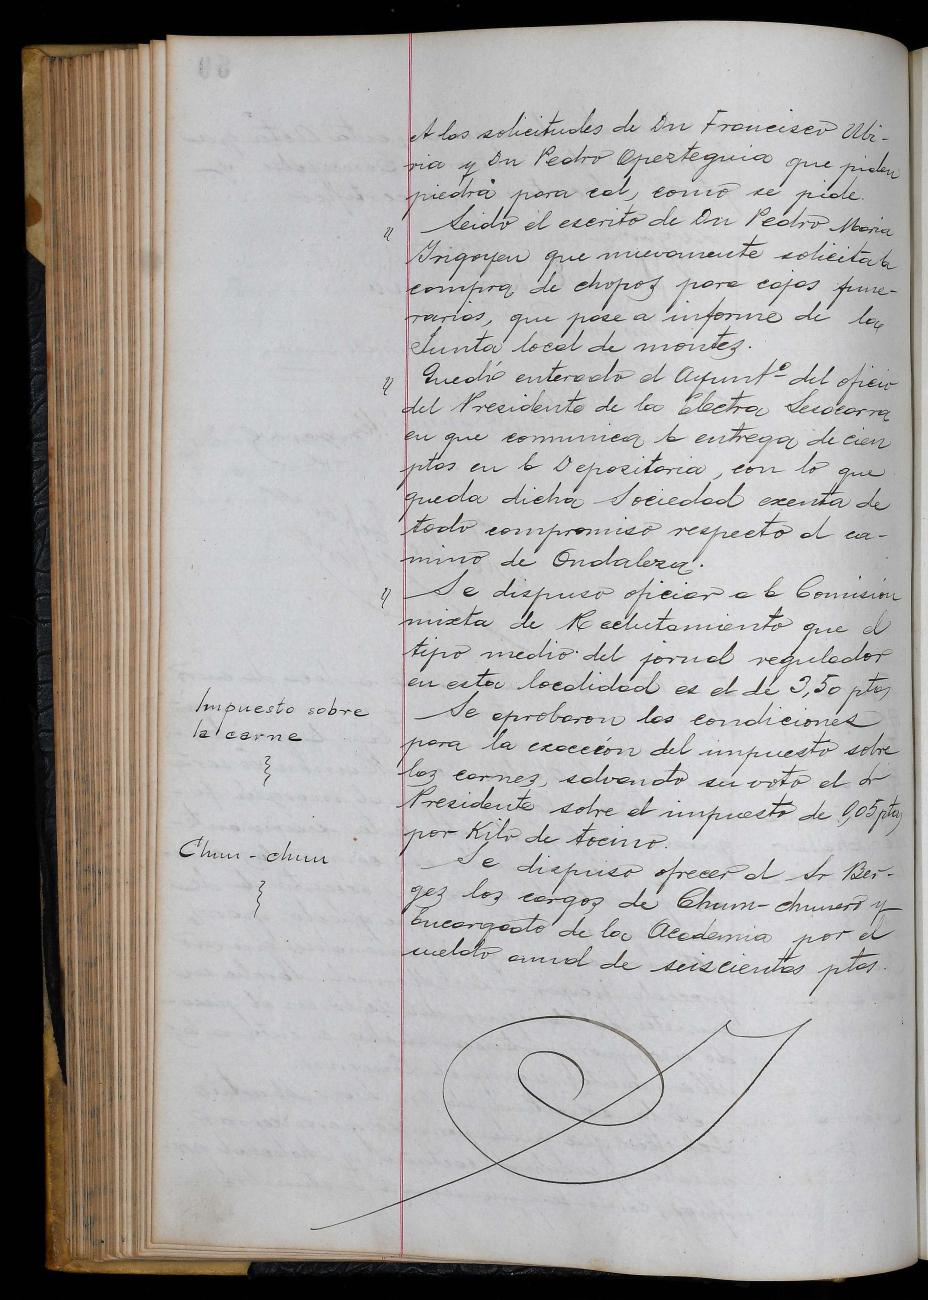 A las solicitudes de Dn Francisco Ubi-
ria y Dn Pedro Opezteguia que piden
piedra para cal, como se pide.
" Leido el escrito de Dn Pedro Maria
Irigoyen que nuevamente solicita la
compra de chopos para cajas fune-
rarias, que pase a informe de la
Junta local de montes.
" Quedó enterado el Ayuntº del oficio
del Presidente de la Electra Lesacarra
en que comunica la entrega de cien
ptas en la Depositaria, con lo que
queda dicha Sociedad exenta de
todo compromiso respecto al ca-
mino de Ondalezq.
" Se dispuso oficiar a la Comisión
mixta de Reclutamiento que el
tipo medio del jornal regulador
en esta localidad es el de 3,50 ptas
Impuesto sobre
la carne
Se aprobaron las condiciones
para la exacción del impuesto sobre
las carnes, salvando su voto el Sr
Presidente sobre el impuesto de 0,05 ptas
por Kilo de tocino.
Chun-chun
Se dispuso ofrecer al Sr Ber-
gez los cargos de Chun-chunero y
Encargado de la Academia por el
sueldo anual de seiscientas ptas.